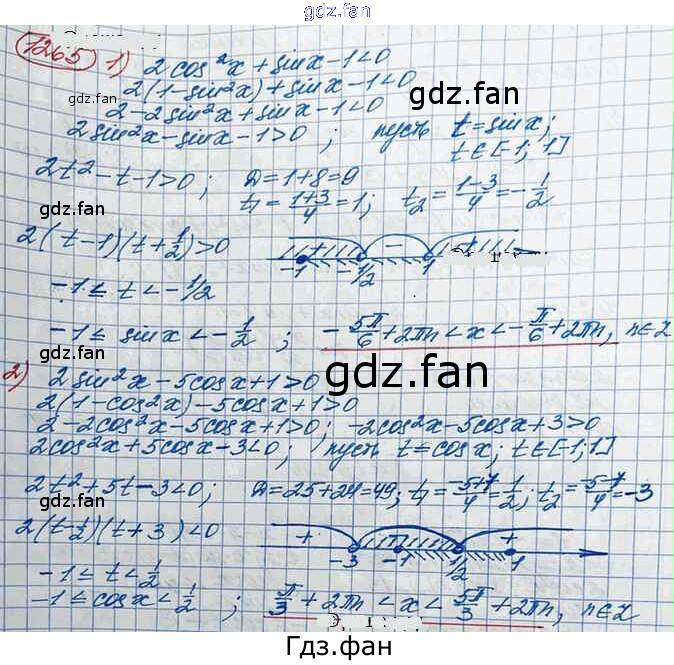 gdz.fan
1265) 1) 2cos²x + sinx - 1 < 0
2(1-sin²x) + sinx - 1 < 0
gdz.fan
2 - 2sin²x + sinx - 1 < 0
2sin²x - sinx - 1 > 0 ; пусть t = sinx;
t ∈ [-1; 1]
2t² - t - 1 > 0 ; D = 1+8 = 9
t₁ = (1+3)/4 = 1; t₂ = (1-3)/4 = -1/2
gdz.fan
gdz.fan
2(t-1)(t+1/2) > 0
+ - +
-1 -1/2 1
-1 ≤ t < -1/2
-1 ≤ sinx < -1/2 ; -5π/6 + 2πn < x < -π/6 + 2πn, n∈Z
gdz.fan
gdz.fan
2) 2sin²x - 5cosx + 1 > 0
2(1-cos²x) - 5cosx + 1 > 0
2 - 2cos²x - 5cosx + 1 > 0; -2cos²x - 5cosx + 3 > 0
2cos²x + 5cosx - 3 < 0; пусть t = cosx; t ∈ [-1; 1]
2t² + 5t - 3 < 0; D = 25+24 = 49; t₁ = (-5+7)/4 = 1/2; t₂ = (-5-7)/4 = -3
gdz.fan
gdz.fan
2(t-1/2)(t+3) < 0
+ - +
-3 -1 1/2 1
-1 ≤ t < 1/2
-1 ≤ cosx < 1/2 ; π/3 + 2πn < x < 5π/3 + 2πn, n∈Z
Гдз.фан